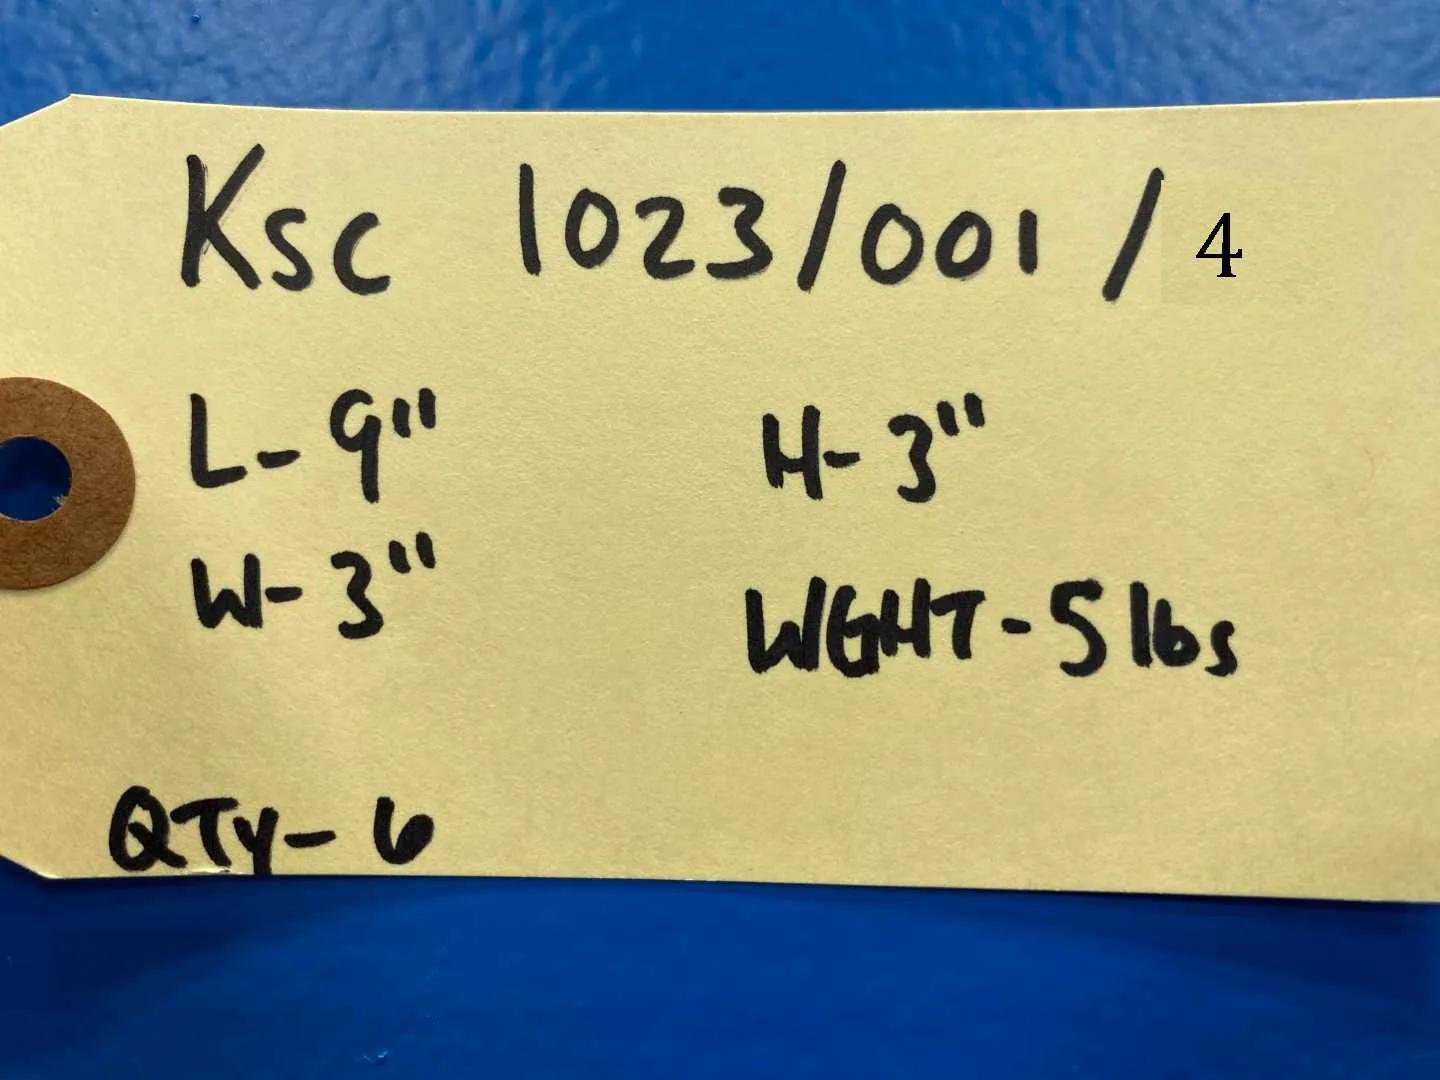 Ksc 1023/001/4
L-9" H-3"
W-3" WGHT-5lbs
QTy-6